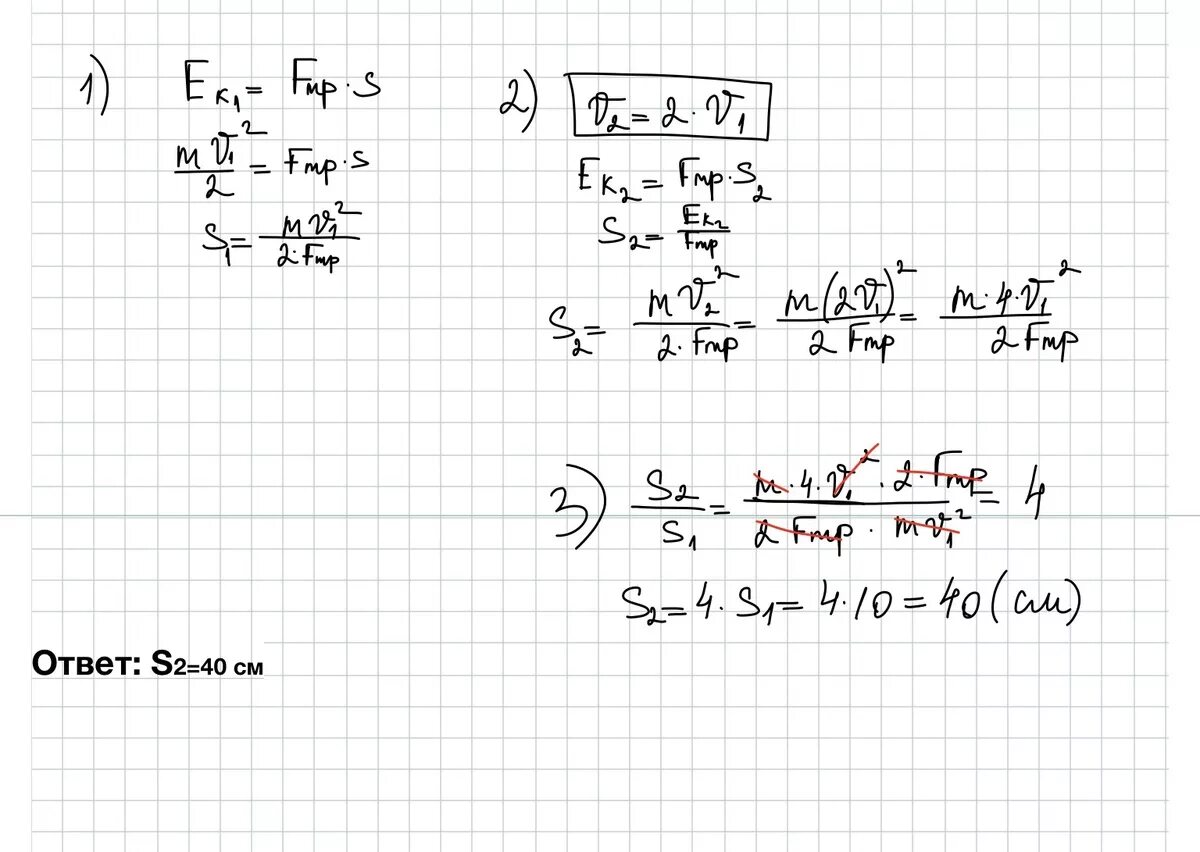 1) Eк₁ = Fтр · S
mV₁²/2 = Fтр · S
S₁ = mV₁²/(2 · Fтр)
2) V₂ = 2 · V₁
Eк₂ = Fтр · S₂
S₂ = Eк₂/Fтр
S₂ = mV₂²/(2 · Fтр) = m(2V₁)²/(2 Fтр) = m · 4 · V₁²/(2 Fтр)
3) S₂/S₁ = (m · 4 · V₁² · 2 · Fтр)/(2 Fтр · mV₁²) = 4
S₂ = 4 · S₁ = 4 · 10 = 40 (см)
Ответ: S2=40 см